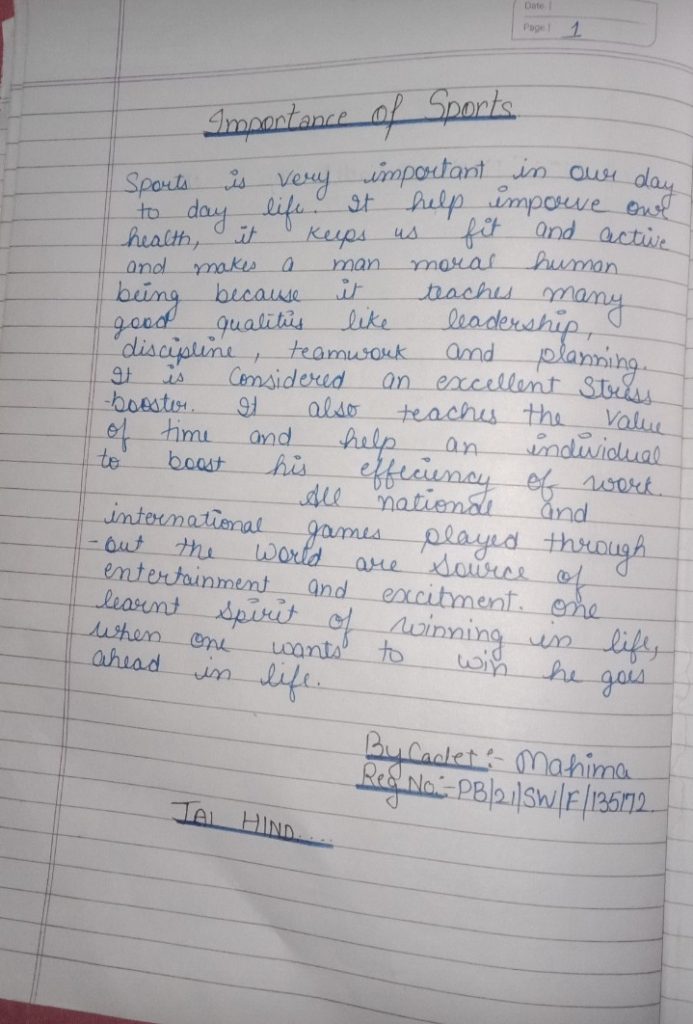 Date.
Page. 1
Importance of Sports
Sports is very important in our day
to day life. It help imporve our
health, it keeps us fit and active
and makes a man moral human
being because it teaches many
good qualities like leadership,
discipline, teamwork and planning.
It is Considered an excellent Stress
-booster. It also teaches the Value
of time and help an individual
to boost his effeciency of work.
All national and
international games played through
-out the world are source of
entertainment and excitment. One
learnt spirit of winning in life,
when one wants to win he goes
ahead in life.
By Cadet :- Mahima
Reg No:- PB/21/SW/F/135172
JAI HIND....